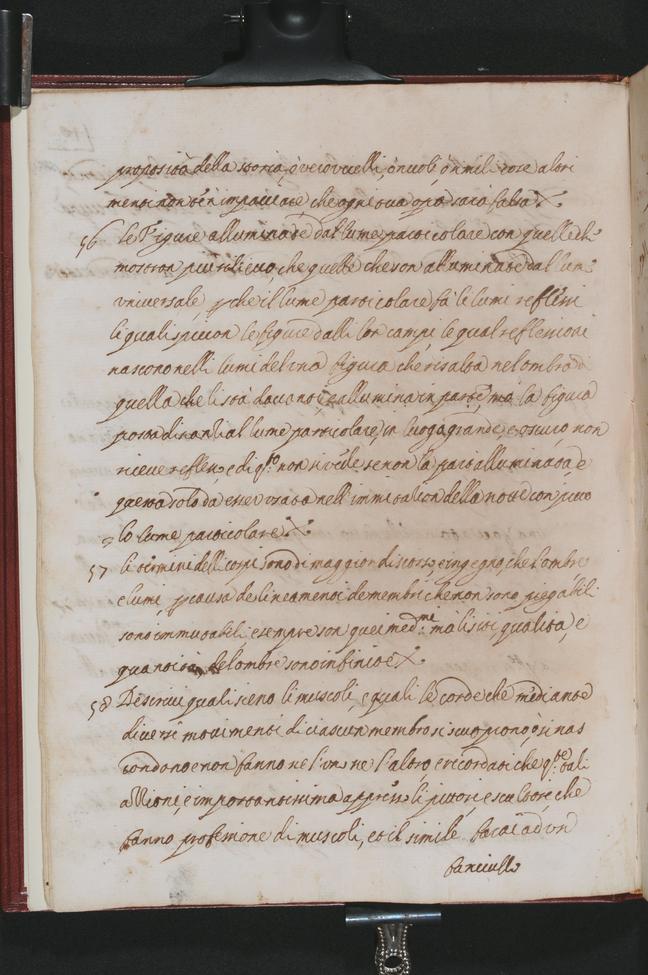 proposità della storia, ò vero vuelli, ò nuoli, ò n mili cose altri
menti non t'en impacciare che ogni tua op.a sarà falsa X.
56 Le Figure alluminate dal lume particolare son quelle ch'
mostron più rilieuo, che quelle che son alluminate dal lum'
vniuersale p che il lume particolare fà li lumi reflessi
li quali spiccon le figure dalli lor campi le qual reflessioni
nascono nelli lumi del vna figura che risalta nel ombra di
quella che li stà dauanti, e allumina in parte, mà la figura
posta dinanti al lume particolare, in luogo grande, e oscuro non
riceue reflesso, e di q.to non si vede se non la parte alluminata, e
questa solo dà esser vsata nell' immitation della notte con picco
=lo lume particolare X.
57 Li termini delli corpi sono di maggior discorso, e ingegno, che l'ombre
e lumi, p causa de lineamenti de membri che non sono piegabili
sono immutabili e sempre son quei med.mi, mà li siti qualità, e
quantità delombre sono infinite X.
58 Descriui quali sieno li muscoli e quali le corde che mediante
diuersi mouimenti di ciascun membro si scuoprono, ò si nas
condono e non fanno ne l'un ne l'altro, e ricordati che q.te tali
attioni, è importantissima appresso li pittori e scultori, che
fanno professione di muscoli, et il simile farai ad vn
fanciullo